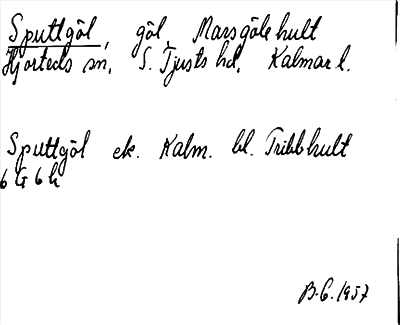 Sputtgöl, göl, Marsgölehult
Hjorteds sn. S. Tjusts hd. Kalmar l.
Sputtgöl ek. Kalm. bl. Tribbhult
6 G 6 h
B.G. 1957